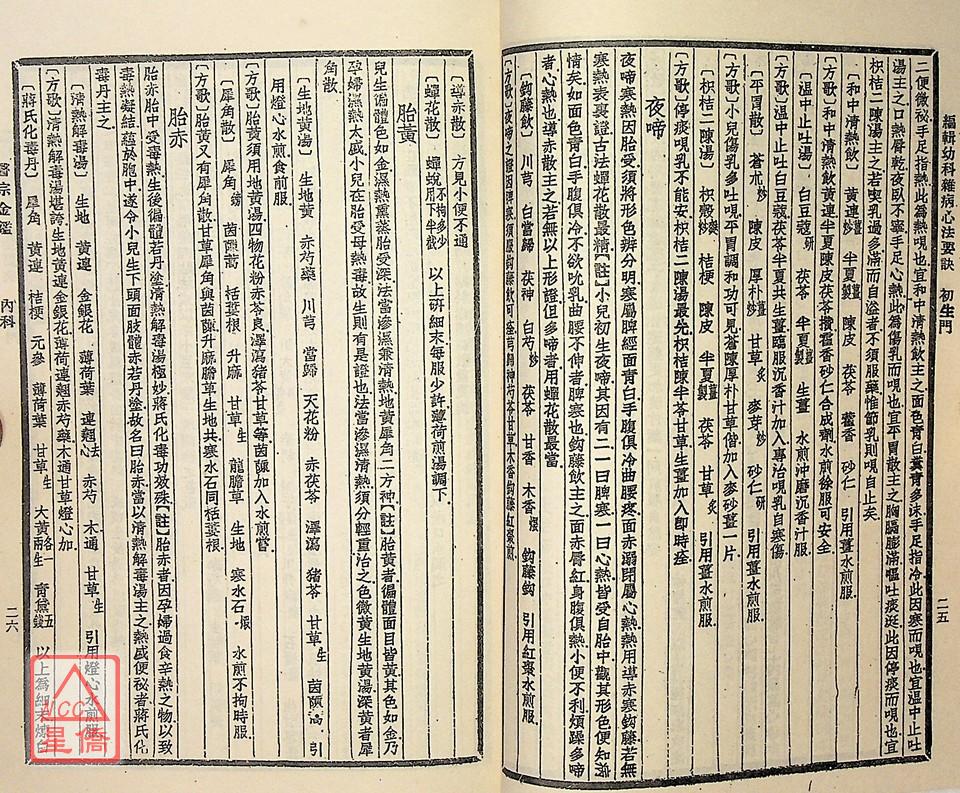 編輯幼科雜病心法要訣　初生門　二五
二便微秘手足指熱此為熱哯也宜和中清熱飲主之面色青白糞青多沫手足指冷此因寒而哯也宜溫中止吐
湯主之口熱唇乾夜臥不寧手足心熱此為傷乳而哯也宜平胃散主之胸膈膨滿嘔吐痰涎此因停痰而哯也宜
枳桔二陳湯主之若喫乳過多滿而自溢者不須服藥惟節乳則哯自止矣
〔和中清熱飲〕　黃連薑炒　半夏薑製　陳皮　茯苓　藿香　砂仁　引用薑水煎服
〔方歌〕和中清熱飲黃連半夏陳皮茯苓攢藿香砂仁合成劑水煎徐服可安全
〔溫中止吐湯〕　白豆蔻研　茯苓　半夏薑製　生薑　水煎沖磨沉香汁服
〔方歌〕溫中止吐白豆蔻茯苓半夏共生薑臨服沉香汁加入專治哯乳自寒傷
〔平胃散〕　蒼朮炒　陳皮　厚朴薑炒　甘草炙　麥芽炒　砂仁研　引用薑水煎服
〔方歌〕小兒傷乳多吐哯平胃調和功可見蒼陳厚朴甘草偕加入麥砂薑一片
〔枳桔二陳湯〕　枳殼麩炒　桔梗　陳皮　半夏薑製　茯苓　甘草炙　引用薑水煎服
〔方歌〕停痰哯乳不能安枳桔二陳湯最先枳桔陳半苓甘草生薑加入卽時痊
夜啼
夜啼寒熱因胎受須將形色辨分明寒屬脾經面青白手腹俱冷曲腰疼面赤溺閉屬心熱熱用導赤寒鉤藤若無
寒熱表裏證古法蟬花散最精【註】小兒初生夜啼其因有二一曰脾寒一曰心熱皆受自胎中觀其形色便知
情矣如面色青白手腹俱冷不欲吮乳曲腰不伸者脾寒也鉤藤飲主之面赤唇紅身腹俱熱小便不利煩躁多啼
者心熱也導赤散主之若無以上形證但多啼者用蟬花散最當
〔鉤藤飲〕　川芎　白當歸　茯神　白芍炒　茯苓　甘草　木香煨　鉤藤鉤　引用紅棗水煎服
〔方歌〕夜啼之證因寒鉤藤飲可痊芎歸神芍苓甘草木香鉤藤紅棗煎
〔導赤散〕　方見小便不通
〔蟬花散〕　蟬蛻不拘多少用下半截　以上研細末每服少許薄荷煎湯調下
胎黃
兒生徧體色如金濕熱熏蒸胎受深法當滲濕兼清熱地黃犀角二方神【註】胎黃者徧體面目皆黃其色如金乃
孕婦濕熱太盛小兒在胎受母熱毒故生則有是證也法當滲濕清熱須分輕重治之色微黃生地黃湯深黃者犀
角散
〔生地黃湯〕　生地黃　赤芍藥　川芎　當歸　天花粉　赤茯苓　澤瀉　豬苓　甘草生　茵陳蒿　引
用燈心水煎食前服
〔方歌〕胎黃須用地黃湯四物花粉赤苓良澤瀉豬苓甘草等茵陳加入水煎嘗
〔犀角散〕　犀角鎊　茵陳蒿　栝蔞根　升麻　甘草生　龍膽草　生地　寒水石煅　水煎不拘時服
〔方歌〕胎黃又有犀角散甘草犀角與茵陳升麻膽草生地共寒水石同栝蔞根
胎赤
胎赤胎中受毒熱生後徧體若丹塗清熱解毒湯極妙蔣氏化毒功效殊【註】胎赤者因孕婦過食辛熱之物以致
毒熱凝結蘊於胞中遂令小兒生下頭面肢體赤若丹塗故名曰胎赤當以清熱解毒湯主之熱盛便秘者蔣氏化
毒丹主之
〔清熱解毒湯〕　生地　黃連　金銀花　薄荷葉　連翹去心　赤芍　木通　甘草生　引用燈心水煎服
〔方歌〕清熱解毒湯堪誇生地黃連金銀花薄荷連翹赤芍藥木通甘草燈心加
〔蔣氏化毒丹〕　犀角　黃連　桔梗　元參　薄荷葉　甘草生　大黃生　青黛五錢　以上為細末煉白
醫宗金鑑　內科　二六
NCC
星僑